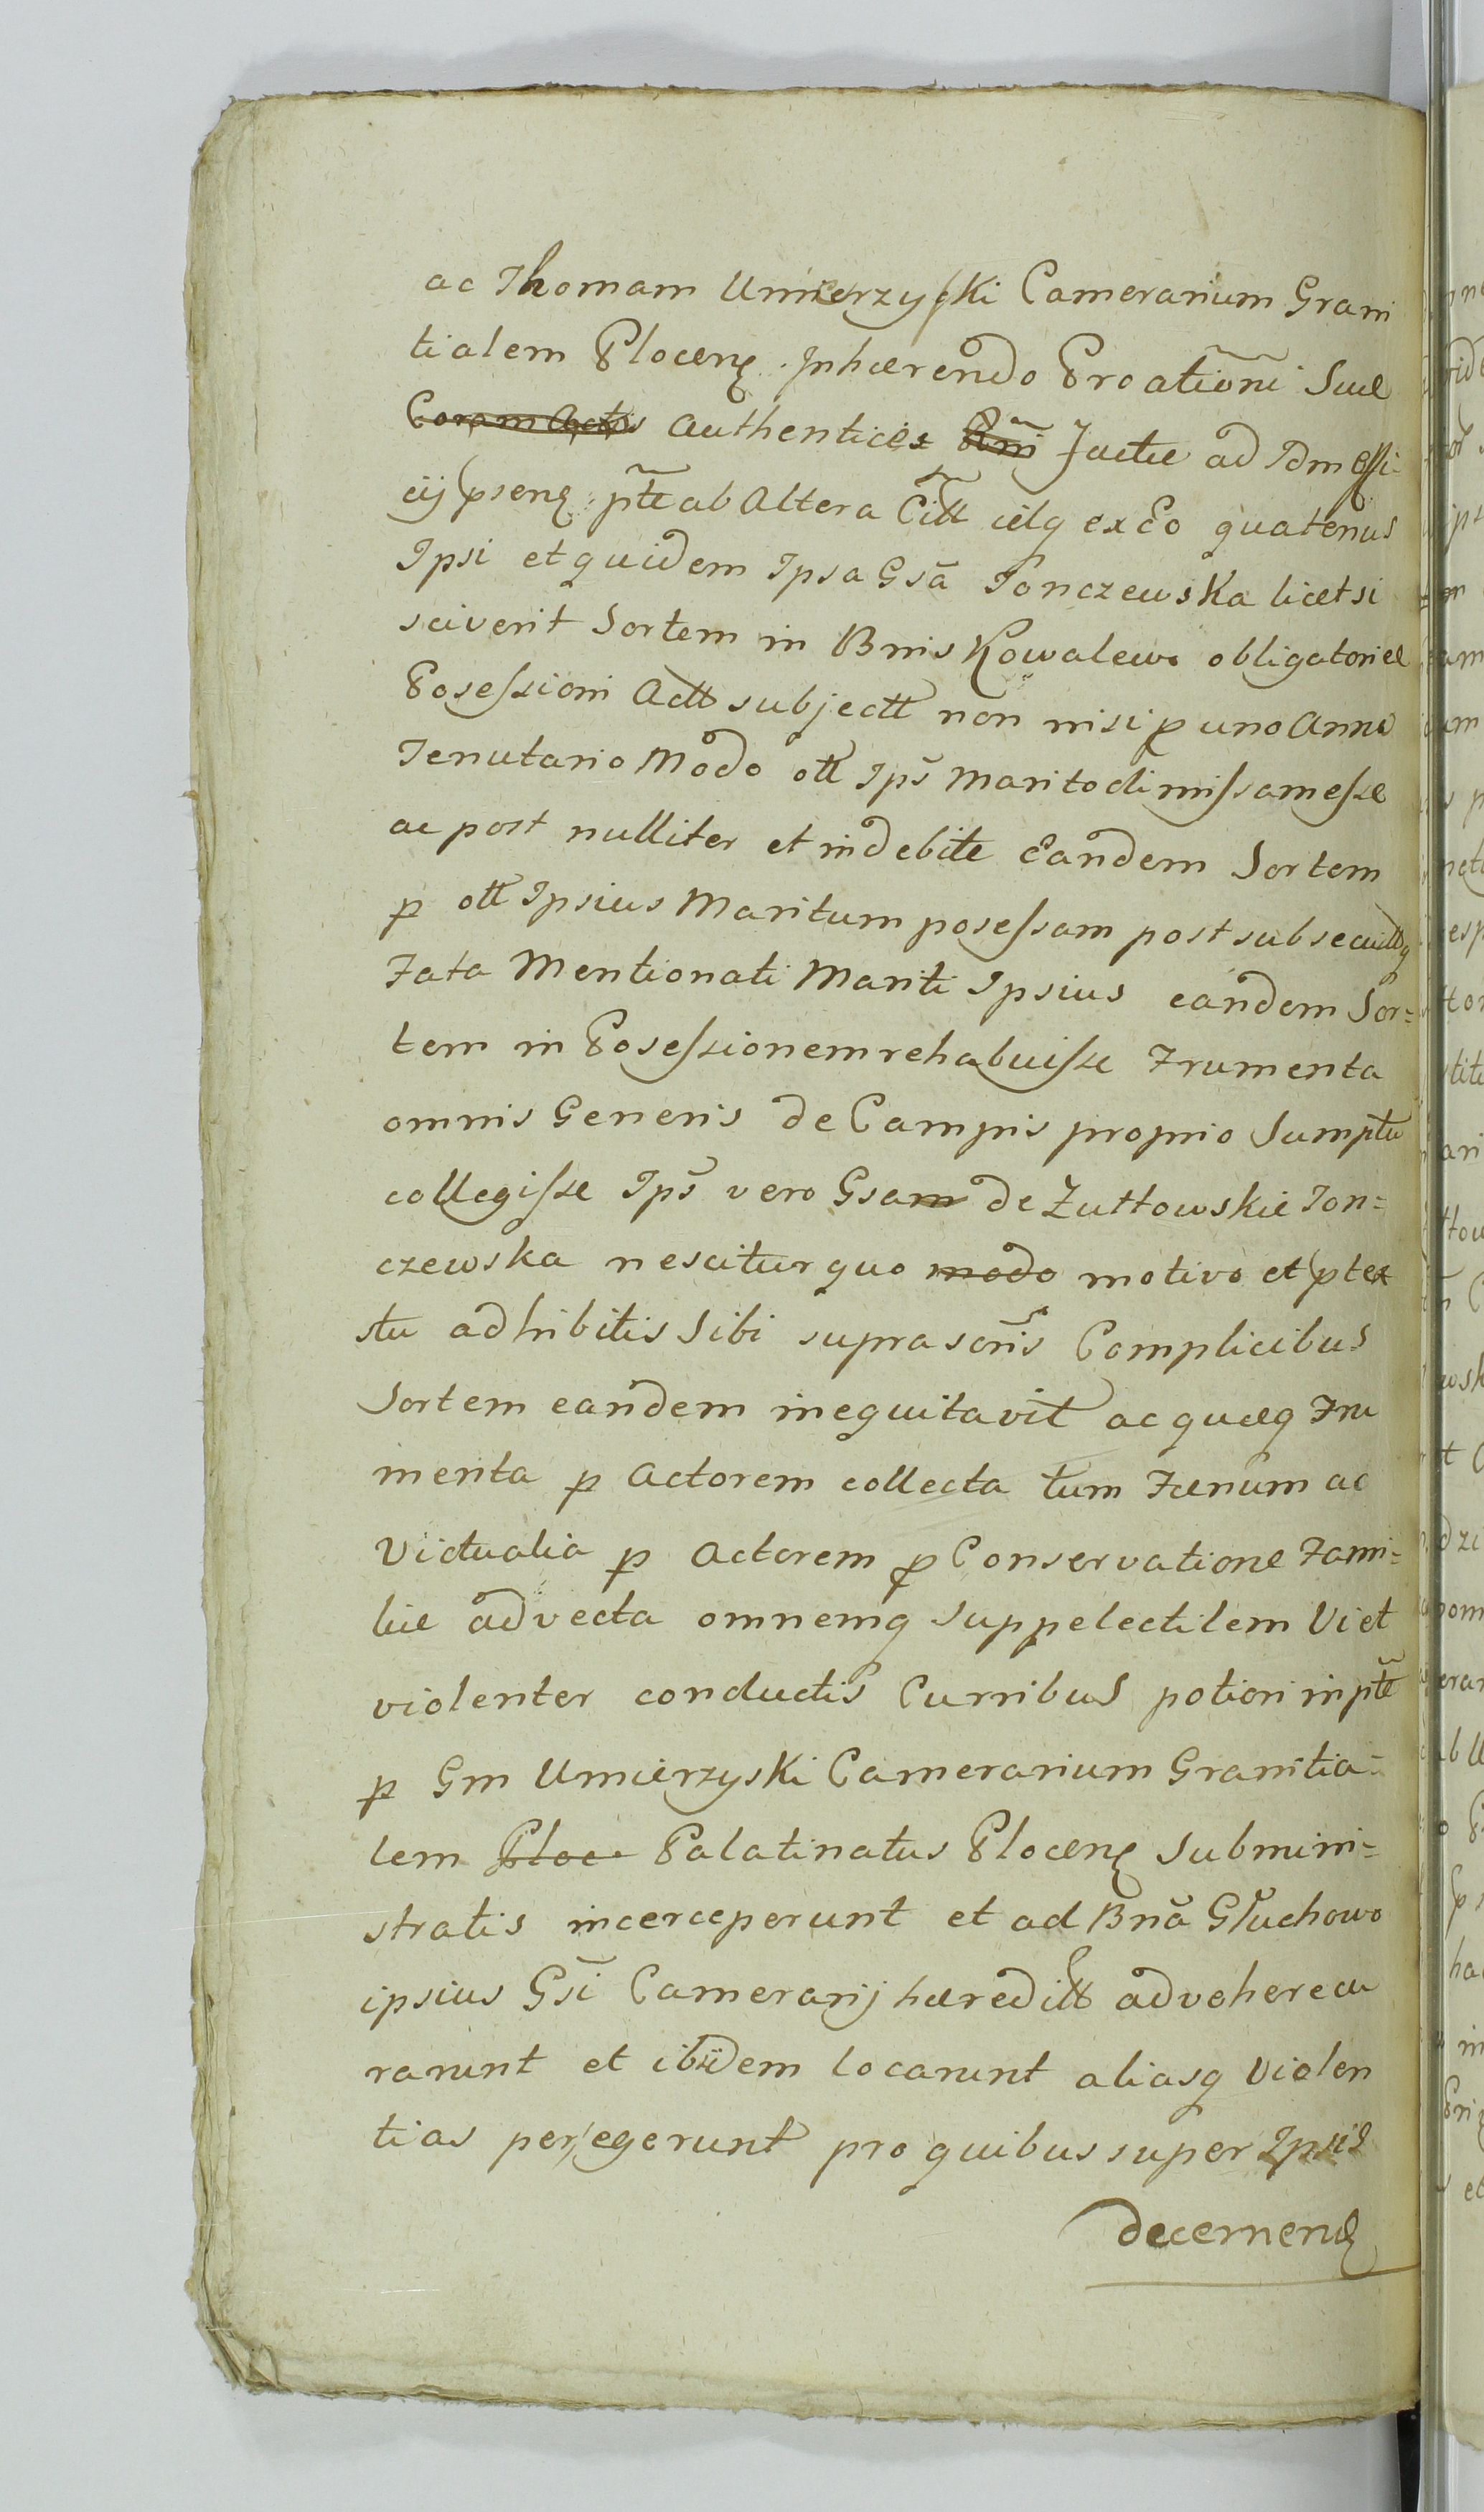 ac Thomam Umierzyski Camerarium Grani
tialem Plocen. Inhærendo Proa͠tioni Suæ
Coram Actis authenticæ Rñi factæ ad Idm Offi-
cij p̃sens p̃te ab Altera Citt ielq ex Eo quatenus
Ipsi et quidem Ipsa Gsã Jonczewska licet si
sciverit Sortem in Bnis Kowalewo obligatoriæ
Posessioni Actt subjectt non nisi p uno Anno
Tenutario Modo ott Ips̃ Marito dimissam esse
ac post nulliter et indebite Eandem Sortem
p ott Ipsius Maritum posessam post subsecuttq
Fata Mentionati Mariti Ipsius eandem Sor=
tem in Posessionem rehabuisse Frumenta
omnis Generis de Campis proprio Sumptu
collegisse Ips̃ vero Gsam de Zuttowskie Jon=
czewska nescitur quo modo motivo et p̃tex
stu adhibitis Sibi suprascris̃ Complicibus
Sortem eandem inequitavit ac quæq Fru
menta p Actorem collecta tum Fænum ac
Victualia p Actorem p Conservatione Fami=
liæ advecta omnemq suppelectilem Vi et
violenter conductis Curribus potiori in p̃te
p Gm Umierzyski Camerarium Granitia=
lem Ploc Palatinatus Plocens Submini=
stratis incerceperunt et ad Bnã Głuchowo
ipsius Gsĩ Camerarij hæreditt advehere cu
rarunt et ibidem locarunt aliasq Violen
tias peregerunt pro quibus super Ipsis
decernend